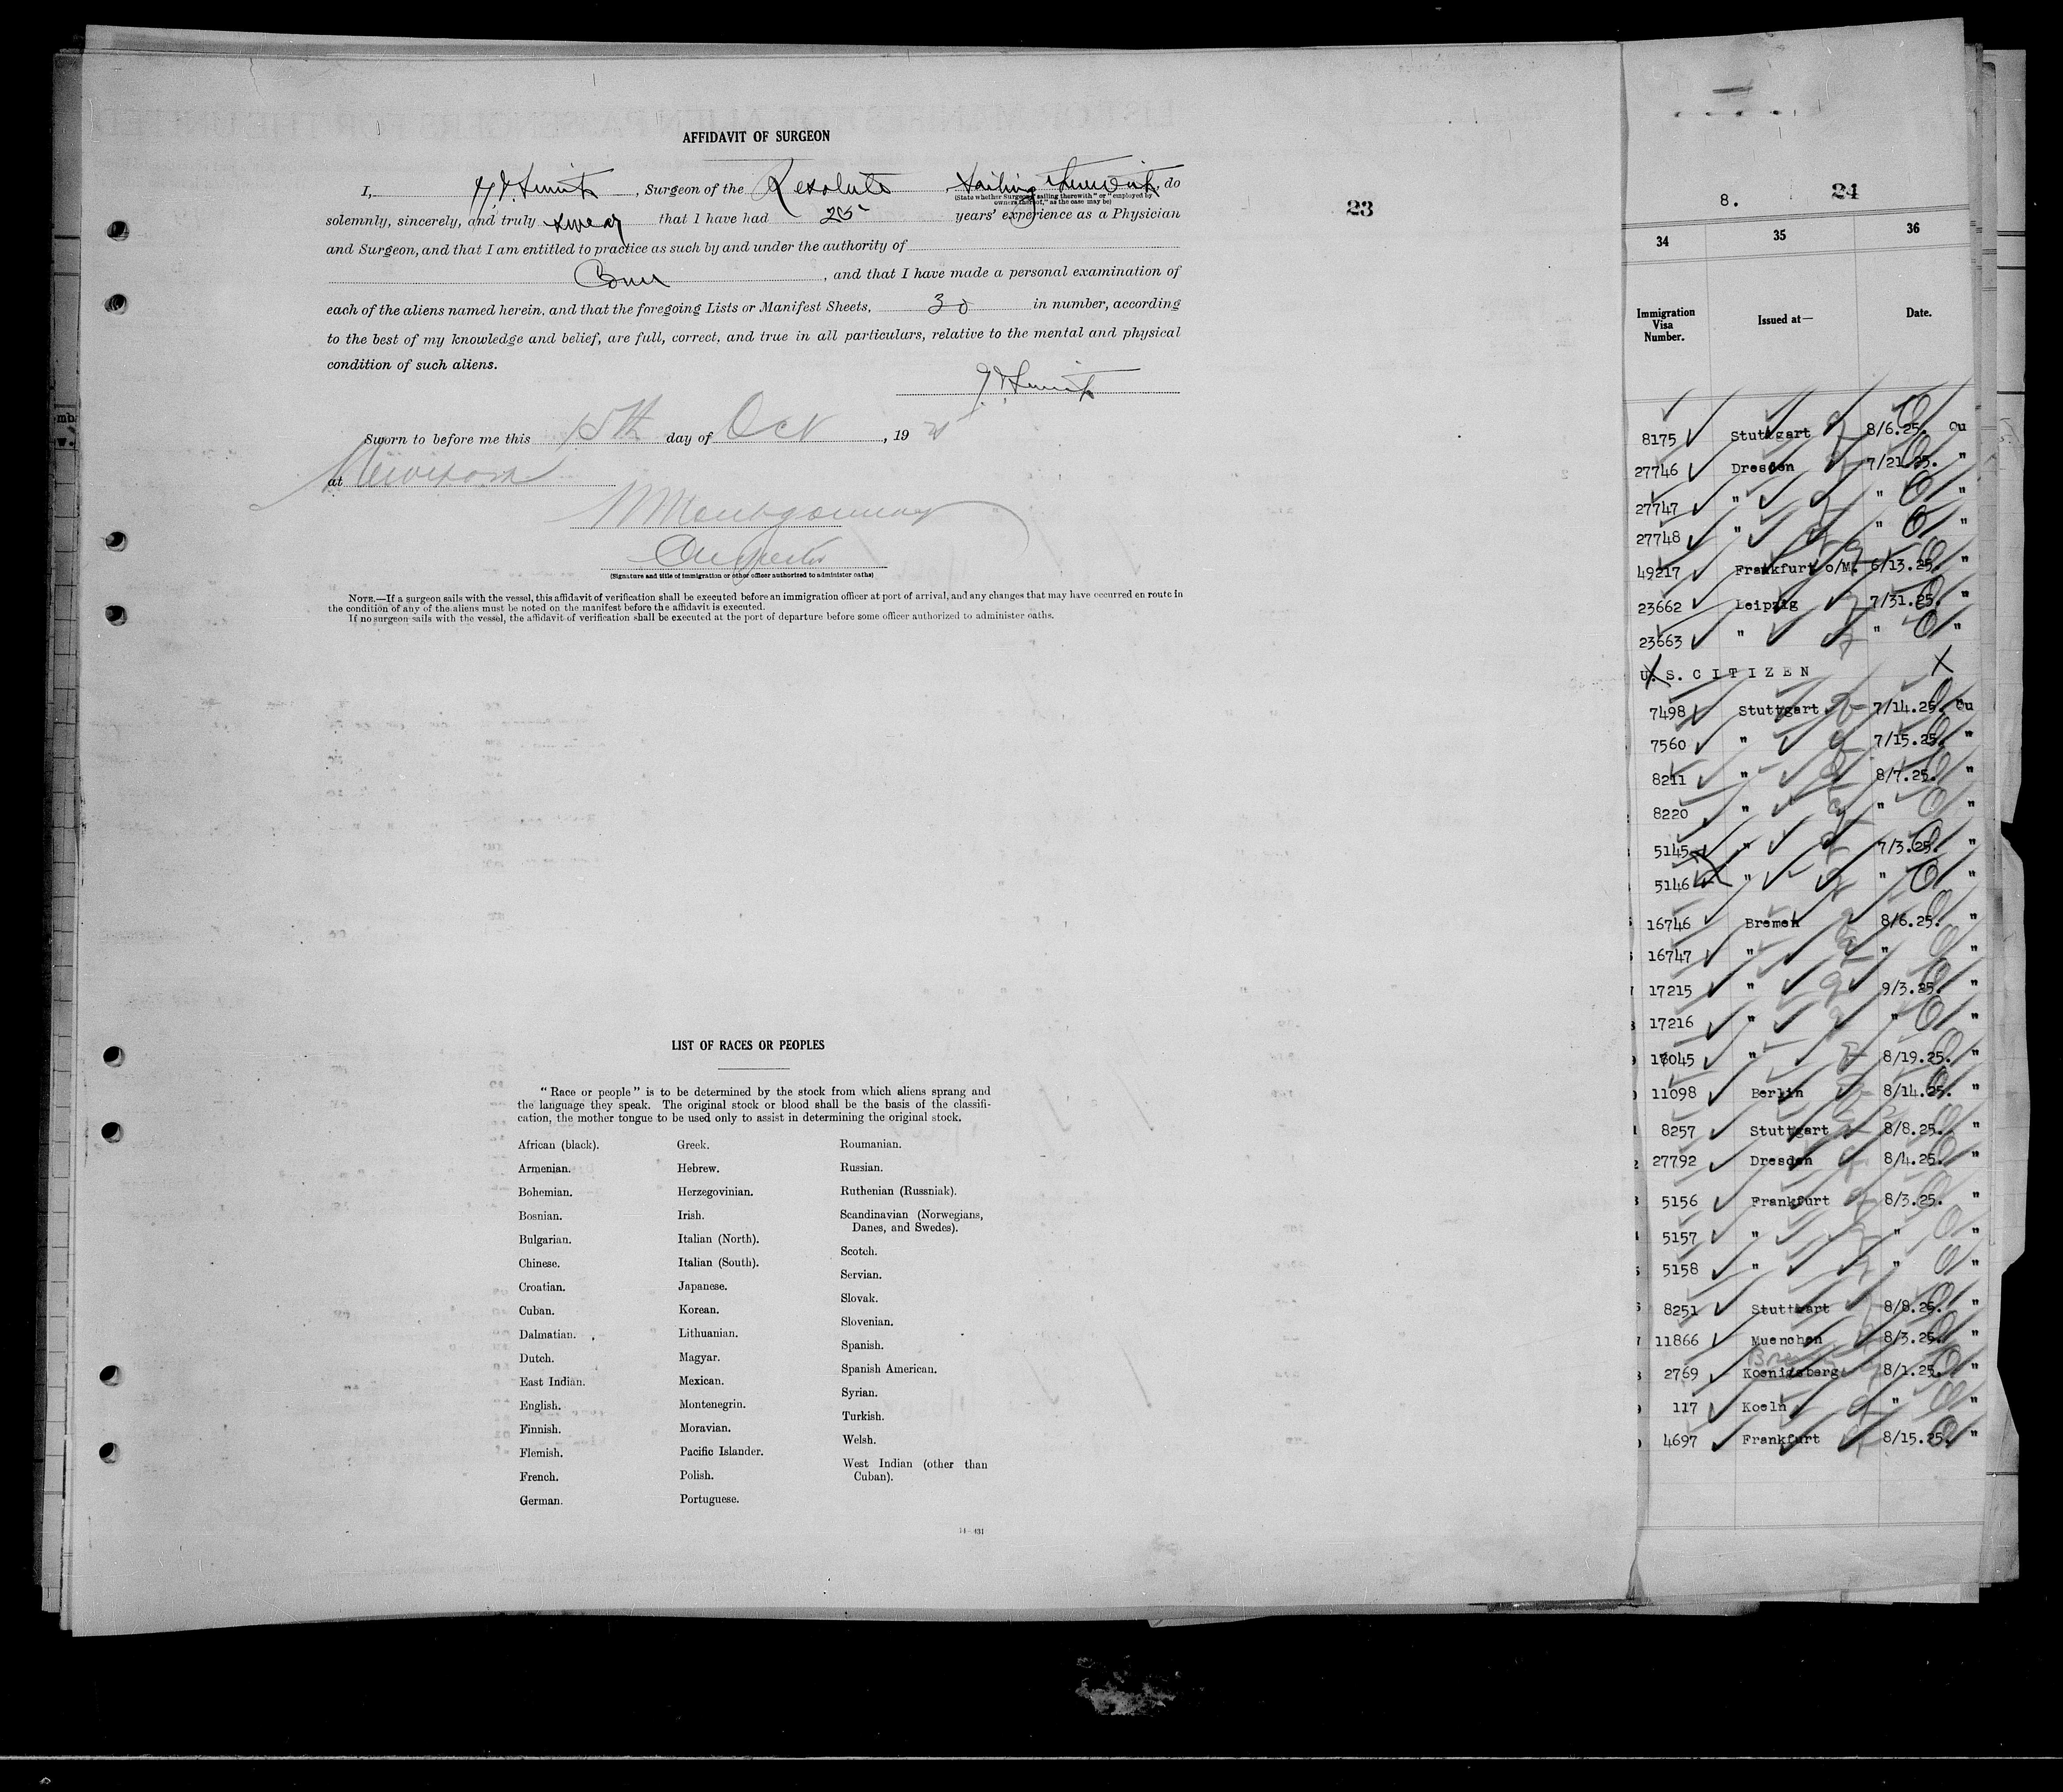 AFFIDAVIT OF SURGEON
I, , Surgeon of the Resolute sailing therewith, do
(State whether Surgeon "sailing therewith" or "employed by owners thereof," as the case may be)
solemnly, sincerely, and truly swear that I have had 25 years' experience as a Physician
and Surgeon, and that I am entitled to practice as such by and under the authority of
, and that I have made a personal examination of
each of the aliens named herein, and that the foregoing Lists or Manifest Sheets, 30 in number, according
to the best of my knowledge and belief, are full, correct, and true in all particulars, relative to the mental and physical
condition of such aliens.
Sworn to before me this 15th day of Oct, 19 25
at New York
Montgomery
Inspector
(Signature and title of immigration or other officer authorized to administer oaths)
NOTE.—If a surgeon sails with the vessel, this affidavit of verification shall be executed before an immigration officer at port of arrival, and any changes that may have occurred en route in
the condition of any of the aliens must be noted on the manifest before the affidavit is executed.
If no surgeon sails with the vessel, the affidavit of verification shall be executed at the port of departure before some officer authorized to administer oaths.
LIST OF RACES OR PEOPLES
"Race or people" is to be determined by the stock from which aliens sprang and
the language they speak. The original stock or blood shall be the basis of the classifi-
cation, the mother tongue to be used only to assist in determining the original stock.
African (black).
Armenian.
Bohemian.
Bosnian.
Bulgarian.
Chinese.
Croatian.
Cuban.
Dalmatian.
Dutch.
East Indian.
English.
Finnish.
Flemish.
French.
German.
Greek.
Hebrew.
Herzegovinian.
Irish.
Italian (North).
Italian (South).
Japanese.
Korean.
Lithuanian.
Magyar.
Mexican.
Montenegrin.
Moravian.
Pacific Islander.
Polish.
Portuguese.
Roumanian.
Russian.
Ruthenian (Russniak).
Scandinavian (Norwegians,
Danes, and Swedes).
Scotch.
Servian.
Slovak.
Slovenian.
Spanish.
Spanish American.
Syrian.
Turkish.
Welsh.
West Indian (other than
Cuban).
14—431
23
8. 24
34 35 36
Immigration Visa Number. Issued at— Date.
8175 Stuttgart 8/6.25. Qu
27746 Dresden 7/21.25. "
27747 " " "
27748 " " "
49217 Frankfurt o/M. 6/13.25. "
23662 Leipzig 7/31.25. "
23663 " " "
U. S. CITIZEN
7498 Stuttgart 7/14.25. Qu
7560 " 7/15.25. "
8211 " 8/7.25. "
8220 " " "
5145 " 7/3.25. "
5146 " " "
16746 Bremen 8/6.25. "
16747 " " "
17215 " 9/3.25. "
17216 " " "
17045 " 8/19.25. "
11098 Berlin 8/14.25. "
8257 Stuttgart 8/8.25. "
27792 Dresden 8/4.25. "
5156 Frankfurt 8/3.25. "
5157 " " "
5158 " " "
8251 Stuttgart 8/8.25. "
11866 Muenchen 8/3.25. "
2769 Koenigsberg 8/1.25. "
117 Koeln " "
4697 Frankfurt 8/15.25. "